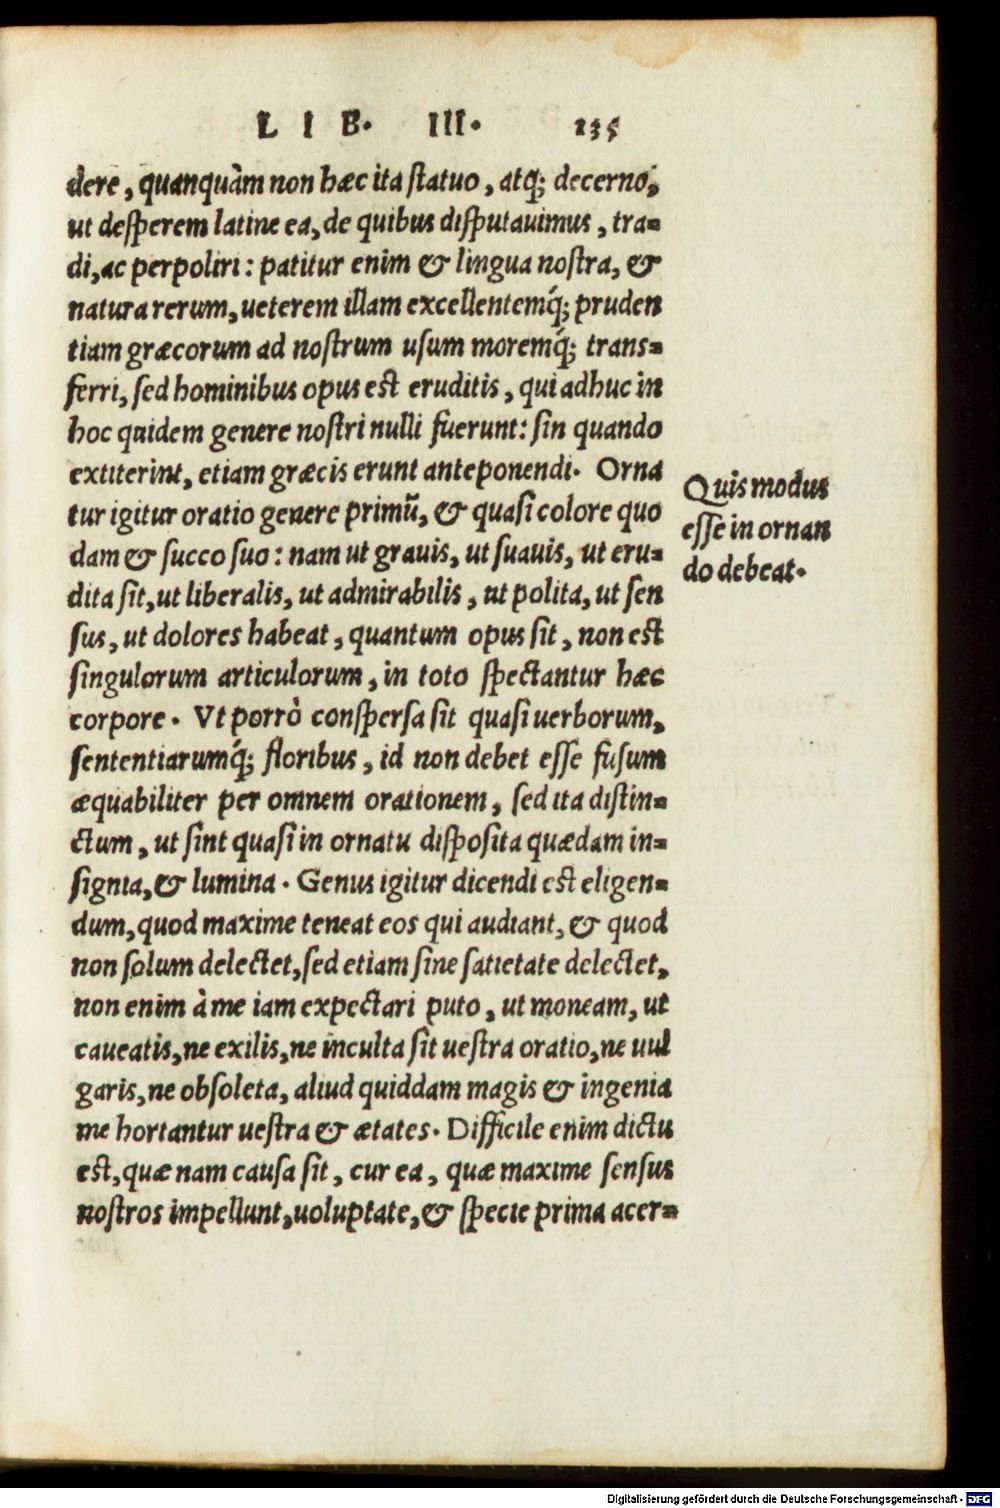 LIB. III. 135
dere, quanquàm non hæc ita statuo, atq; decerno,
ut desperem latine ea, de quibus disputauimus, tra-
di, ac perpoliri: patitur enim & lingua nostra, &
natura rerum, ueterem illam excellentemq́; pruden
tiam græcorum ad nostrum usum moremq́; trans-
ferri, sed hominibus opus est eruditis, qui adhuc in
hoc quidem genere nostri nulli fuerunt: sin quando
extiterint, etiam græcis erunt anteponendi. Orna
tur igitur oratio genere primū, & quasi colore quo
dam & succo suo: nam ut grauis, ut suauis, ut eru-
dita sit, ut liberalis, ut admirabilis, ut polita, ut sen
sus, ut dolores habeat, quantum opus sit, non est
singulorum articulorum, in toto spectantur hæc
corpore. Vt porrò conspersa sit quasi uerborum,
sententiarumq́; floribus, id non debet esse fusum
æquabiliter per omnem orationem, sed ita distin-
ctum, ut sint quasi in ornatu disposita quædam in-
signia, & lumina. Genus igitur dicendi est eligen-
dum, quod maxime teneat eos qui audiant, & quod
non solum delectet, sed etiam sine satietate delectet,
non enim à me iam expectari puto, ut moneam, ut
caueatis, ne exilis, ne inculta sit uestra oratio, ne uul
garis, ne obsoleta, aliud quiddam magis & ingenia
me hortantur uestra & ætates. Difficile enim dictu
est, quæ nam causa sit, cur ea, quæ maxime sensus
nostros impellunt, uoluptate, & specie prima acer-
Quis modus
esse in ornan
do debeat.
Digitalisierung gefördert durch die Deutsche Forschungsgemeinschaft - DFG